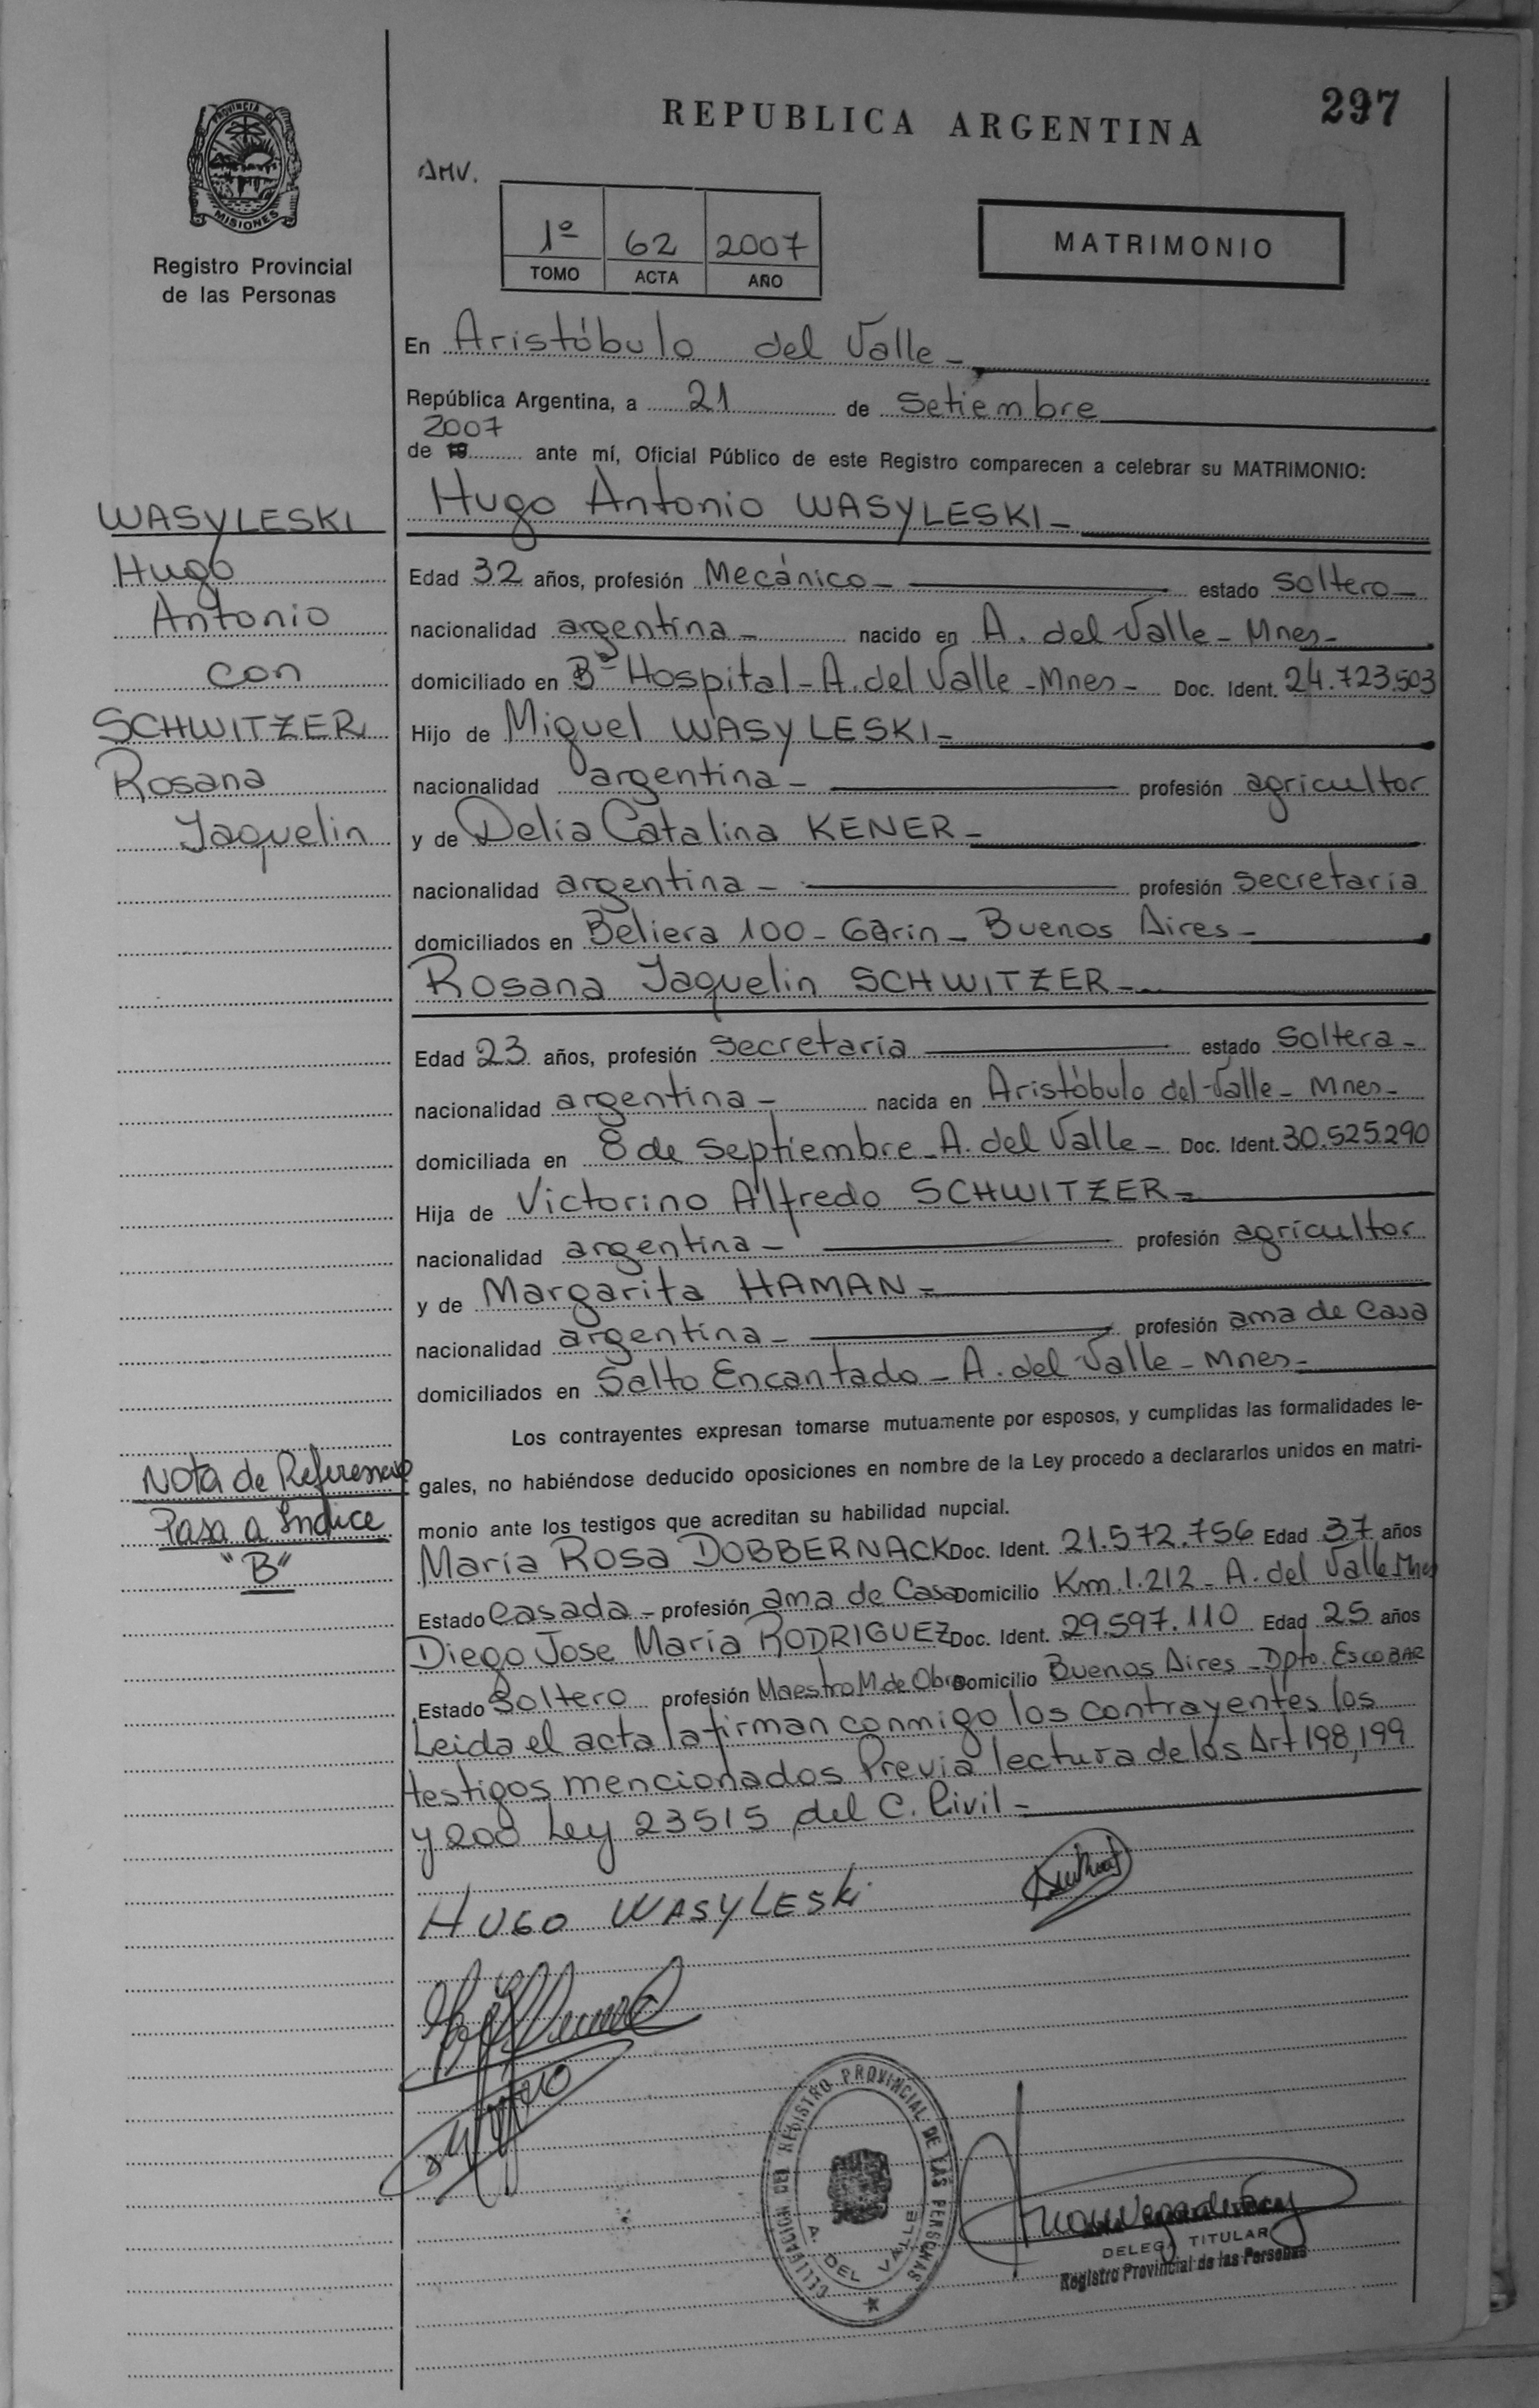 REPUBLICA ARGENTINA
297
PROVINCIA DE
MISIONES
Registro Provincial
de las Personas
AMV.
1º 62 2007
TOMO ACTA AÑO
MATRIMONIO
En Aristóbulo del Valle -
República Argentina, a 21 de Setiembre
2007
de 19 ante mí, Oficial Público de este Registro comparecen a celebrar su MATRIMONIO:
Hugo Antonio WASYLESKI -
Edad 32 años, profesión Mecánico - estado Soltero -
nacionalidad argentina - nacido en A. del Valle - Mnes -
domiciliado en Bº Hospital - A. del Valle - Mnes - Doc. Ident. 24.723.503
Hijo de Miguel WASYLESKI -
nacionalidad argentina - profesión agricultor
y de Delia Catalina KENER -
nacionalidad argentina - profesión secretaria
domiciliados en Beliera 100 - Garin - Buenos Aires -
Rosana Jaquelin SCHWITZER -
Edad 23 años, profesión Secretaria estado Soltera -
nacionalidad argentina - nacida en Aristóbulo del Valle - Mnes -
domiciliada en 8 de Septiembre - A. del Valle - Doc. Ident. 30.525.290
Hija de Victorino Alfredo SCHWITZER -
nacionalidad argentina - profesión agricultor
y de Margarita HAMAN -
nacionalidad argentina - profesión ama de casa
domiciliados en Salto Encantado - A. del Valle - Mnes -
Los contrayentes expresan tomarse mutuamente por esposos, y cumplidas las formalidades le-
gales, no habiéndose deducido oposiciones en nombre de la Ley procedo a declararlos unidos en matri-
monio ante los testigos que acreditan su habilidad nupcial.
María Rosa DOBBERNACK Doc. Ident. 21.572.756 Edad 37 años
Estado Casada - profesión ama de Casa Domicilio Km. 1.212 - A. del Valle Mnes
Diego Jose María RODRIGUEZ Doc. Ident. 29.597.110 Edad 25 años
Estado Soltero profesión Maestro M. de Obra Domicilio Buenos Aires - Dpto. ESCOBAR
Leida el acta la firman conmigo los contrayentes los
testigos mencionados Previa lectura de los Art 198, 199
y 200 Ley 23515 del C. Civil -
HUGO WASYLESki
WASYLESKI
Hugo
Antonio
con
SCHWITZER
Rosana
Jaquelin
Nota de Referencia
Pasa a Indice
"B"
DELEGACION DEL REGISTRO PROVINCIAL DE LAS PERSONAS
A. DEL VALLE
DELEG TITULAR
Registro Provincial de las Personas